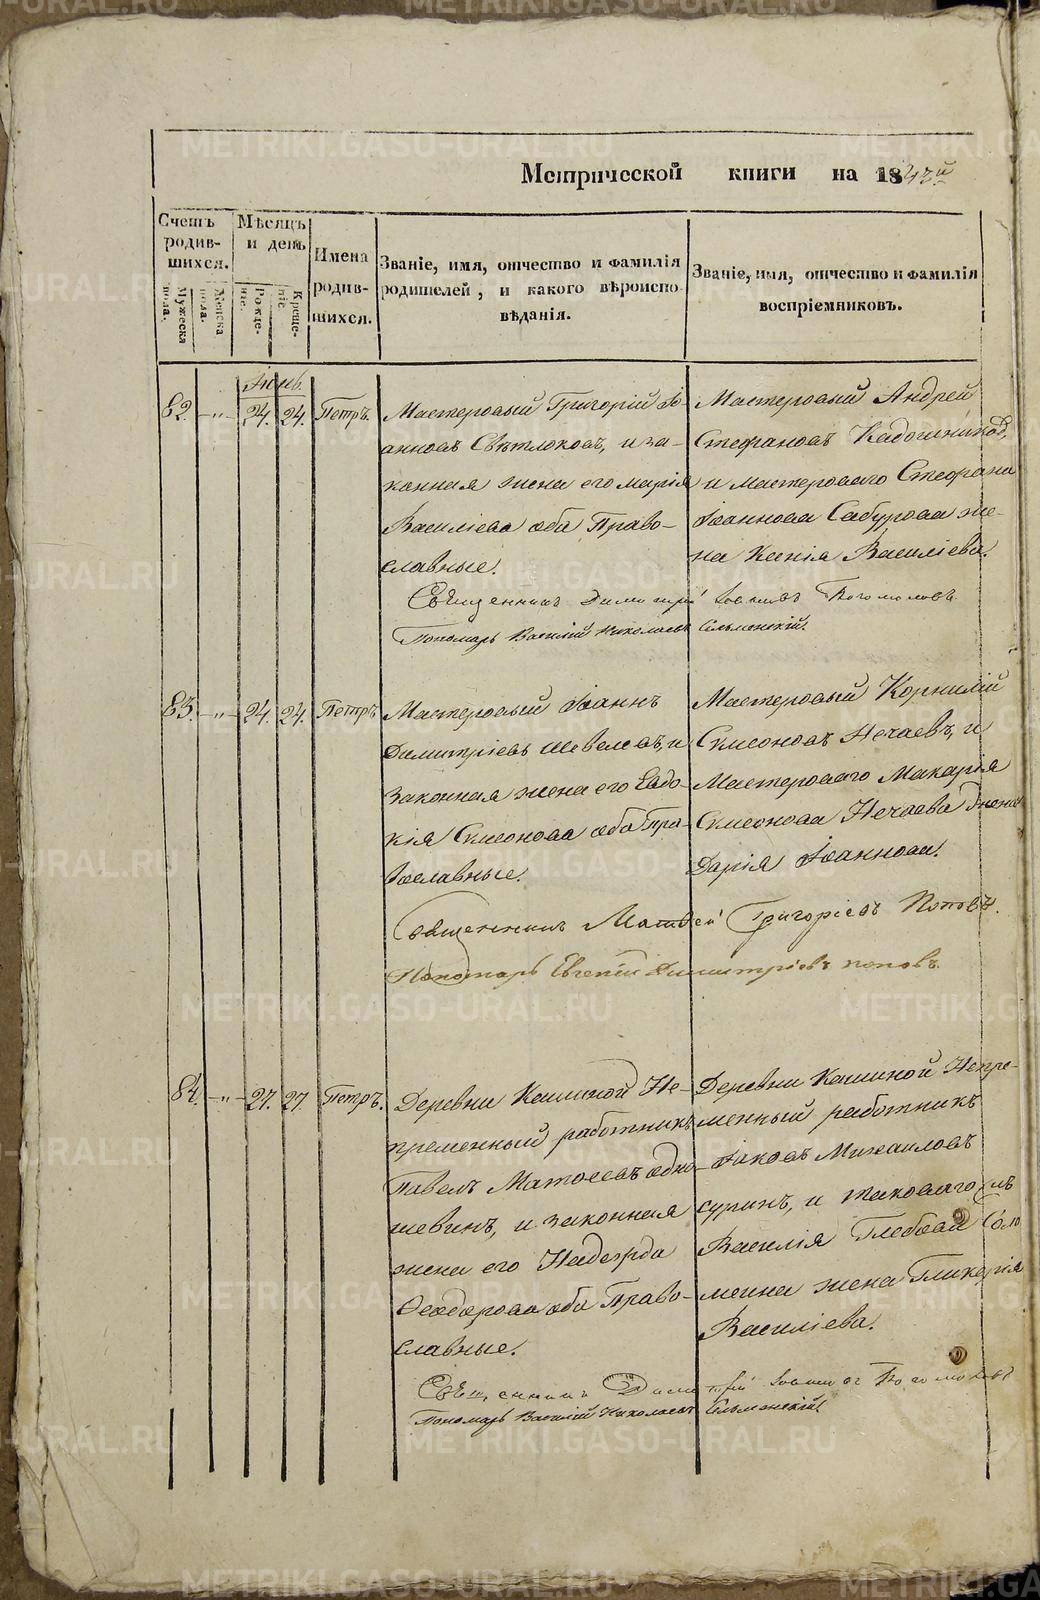 Метрической книги на 1843й
Счетъ родившихся.
Мужеска пола.
Женска пола.
Мѣсяцъ и день
Рожденіе.
Крещеніе
Имена родившихся.
Званіе, имя, отчество и фамилія родителей, и какого вѣроисповѣданія.
Званіе, имя, отчество и фамилія воспріемниковъ.
82. " 24. 24. Петръ.
Мастеровый Григорій Іо-
анновъ Свѣтлоковъ, и за-
конная жена его Марія
Василіева оба Право-
славные.
Мастеровый Андрей
Стефановъ
и мастероваго Стефана
Іоаннова Сабурова же-
на Ксенія Василіева.
Священникъ Димитрій Іоаннъ Богомоловъ
Пономарь Василій Николаевъ Сельменскій.
83. " 24. 24. Петръ
Мастеровый Іоаннъ
Димитріевъ Шевелевъ, и
законная жена его Евдо-
кія Симеонова оба Пра-
вославные.
Мастеровый Корнилій
Симеоновъ Нечаевъ, и
Мастероваго Макарія
Симеонова Нечаева жена
Дарія Іоаннова.
Священникъ Матѳей Григоріевъ Поповъ.
Пономарь Евгеній Димитріевъ Поповъ.
84. " 27. 27. Петръ.
Деревни Кашиной Не-
премѣнный работникъ
Павелъ Матѳеевъ
шевинъ, и законная
жена его Надежда
Ѳеодорова оба Право-
славные.
Деревни Кашиной Непре-
мѣнный работникъ
Іаковъ Михаиловъ
суринъ, и таковаго
Василія Глебова
жена Гликерія
Василіева.
Священникъ Димитрій Іоаннъ Богомоловъ
Пономарь Василій Николаевъ Сельменскій.
METRIKI.GASO-URAL.RU